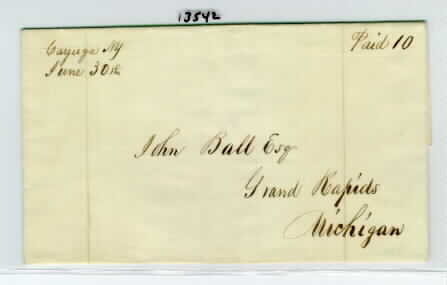 13542
Cayuga NY
June 30th
Paid 10
John Ball Esq
Grand Rapids
Michigan